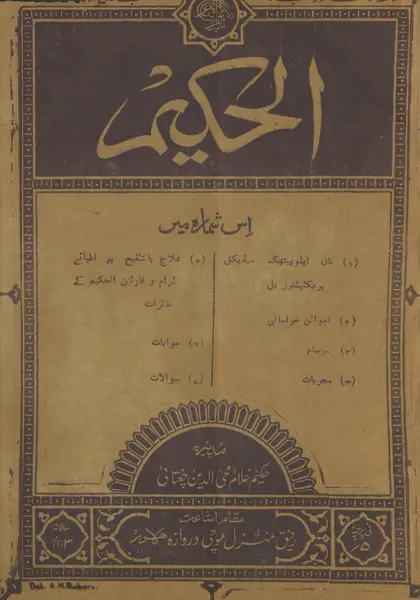 الحکیم
اِس شمارہ میں
(۱) نان ایلوپیتھک میڈیکل
پریکٹیشنرز بل
(۲) اجوائن خراسانی
(۳) سرسام
(۴) مجربات
(۵) علاج بالتنقیح پر اطبائے
کرام و قارئین الحکیم کے
تاثرات
(۶) جوابات
(۷) سوالات
مدیر
حکیم غلام محی الدین چغتائی
مقام اشاعت
رفیق منزل موچی دروازہ لاہور
سالانہ
۳ روپے
فی پرچہ
۵؍
Del. A.M.